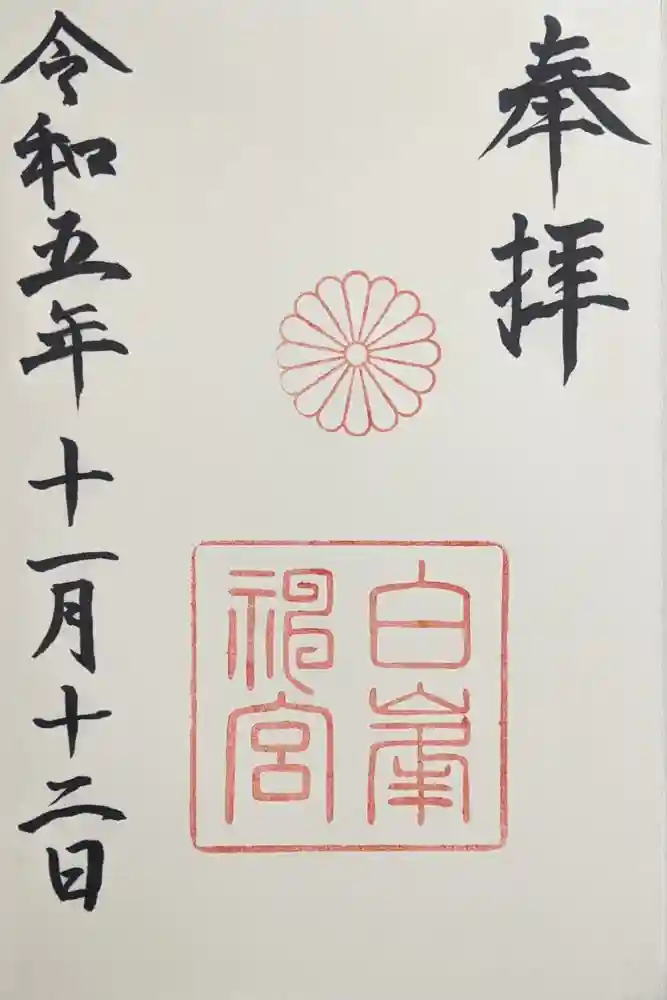 奉拝
白峯
神宮
令和五年十一月十二日